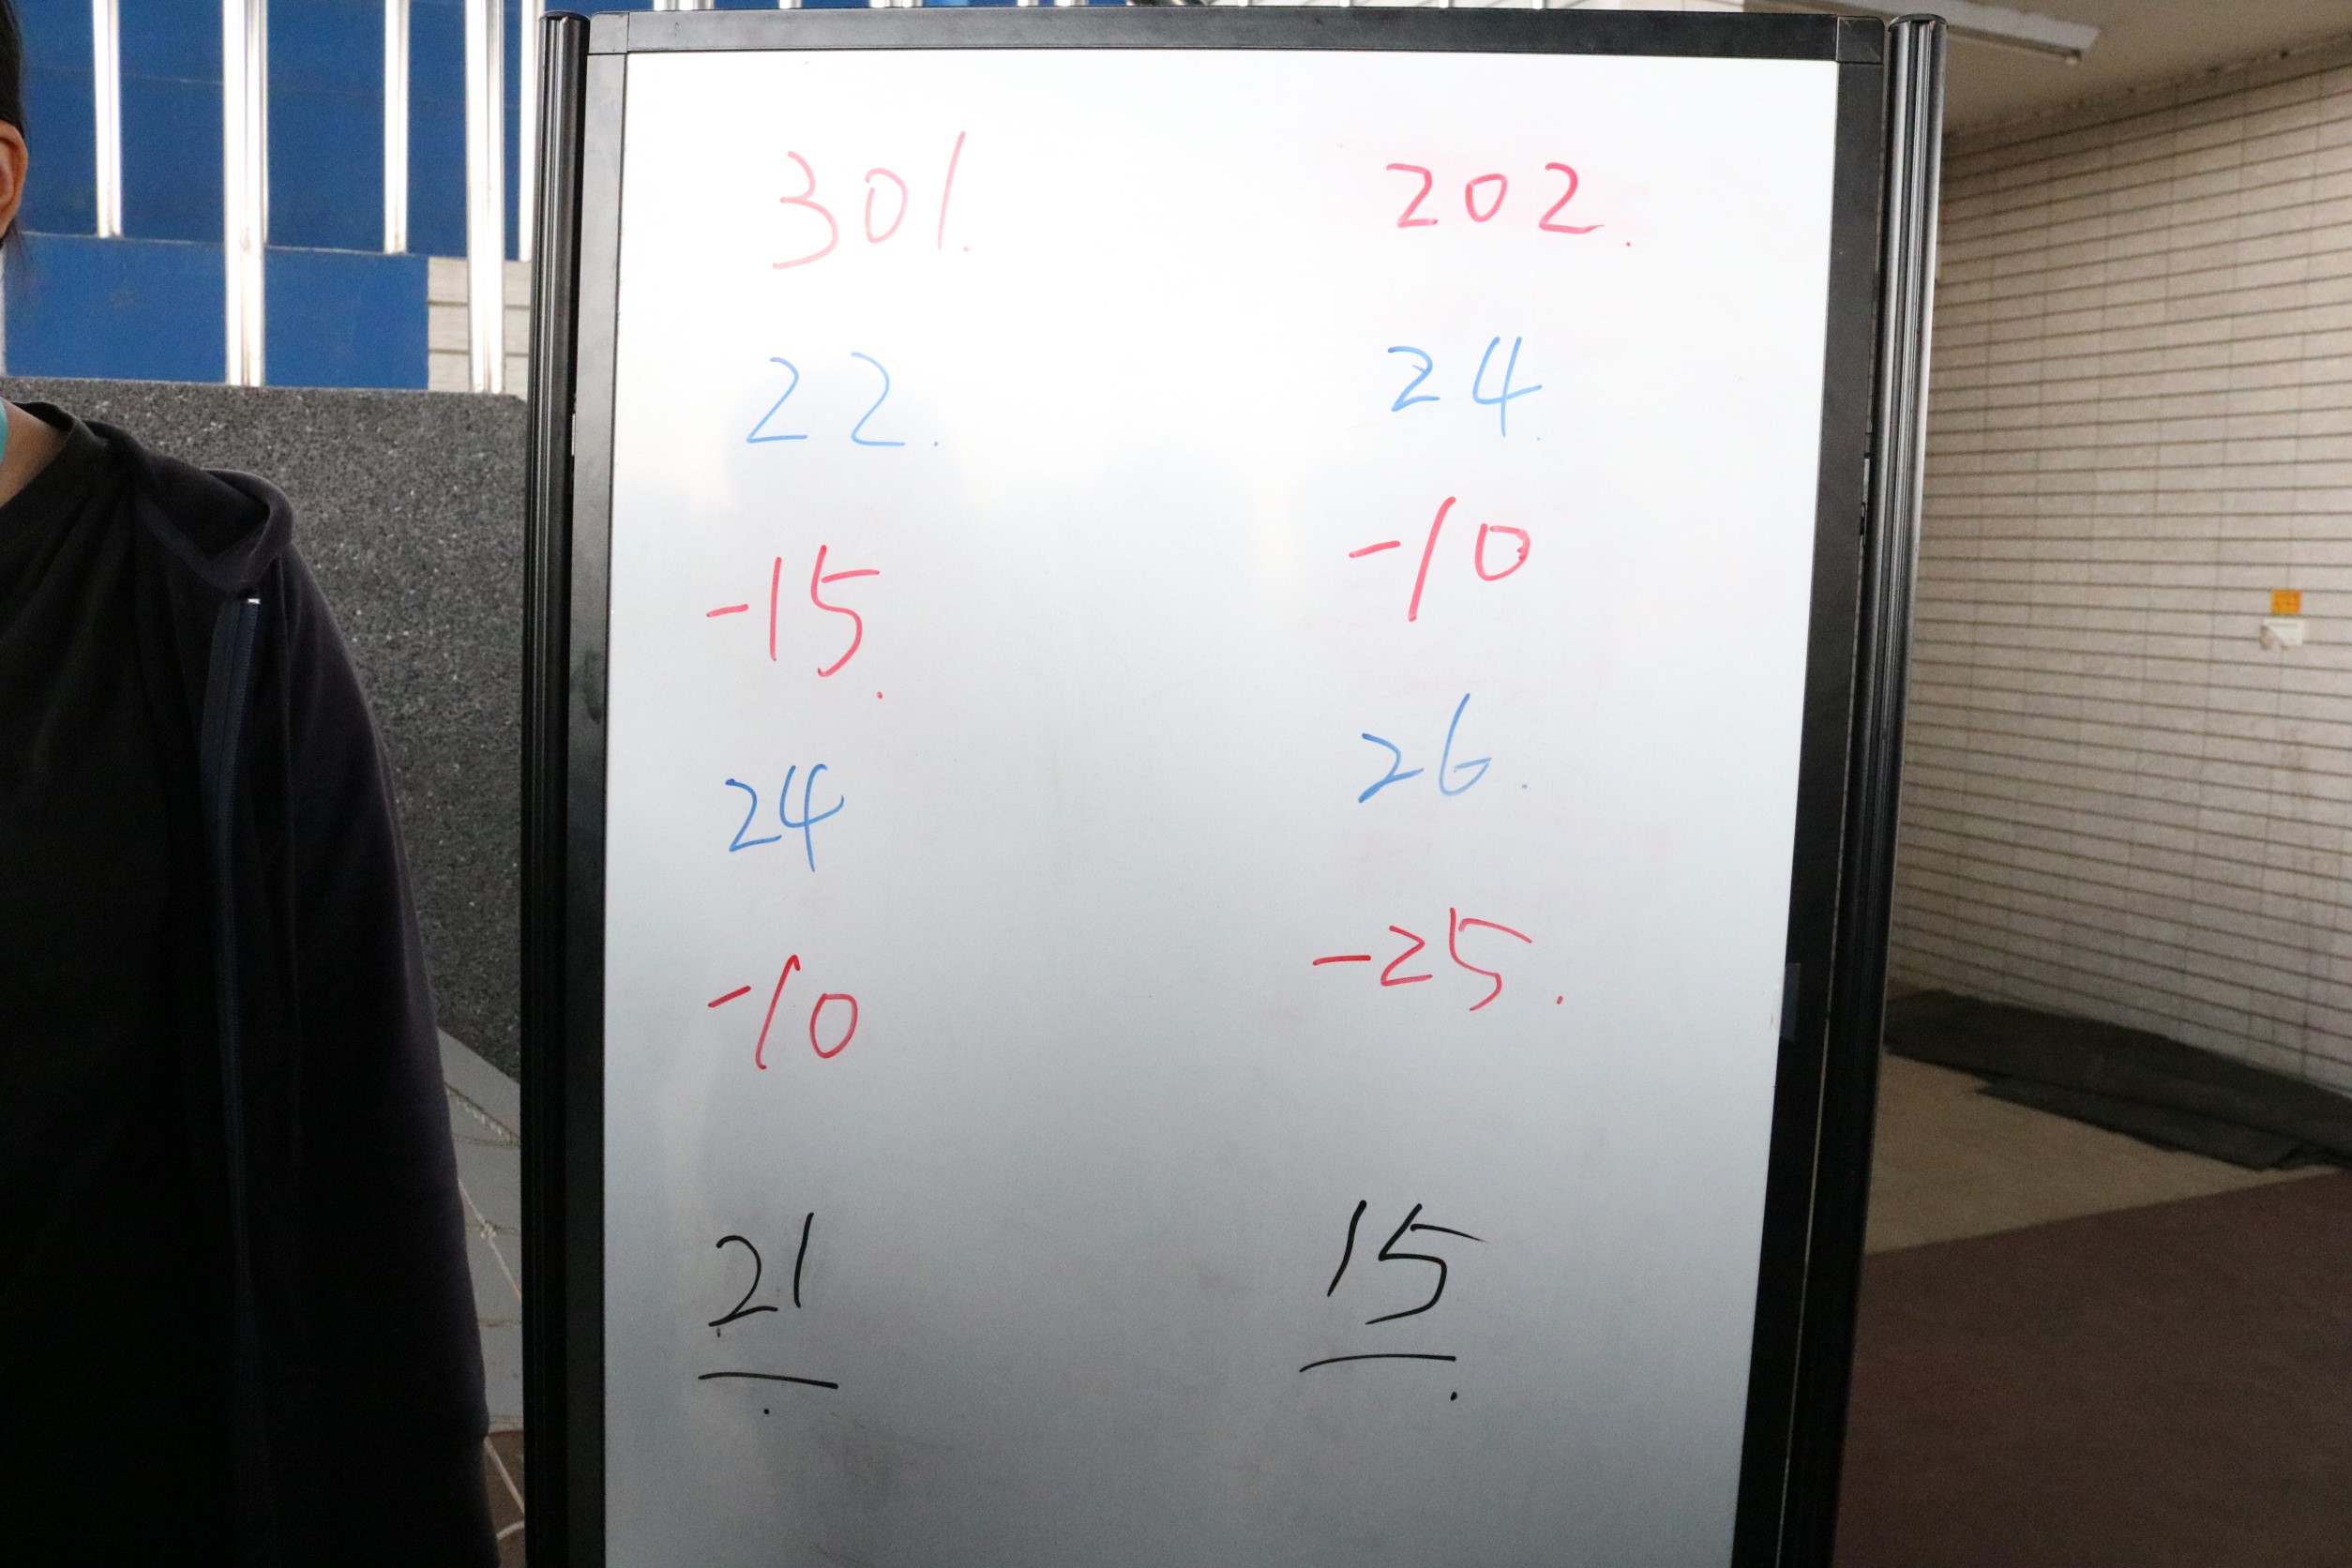 301. 202.
22. 24.
-15. -10
24 26.
-10 -25.
21 15.